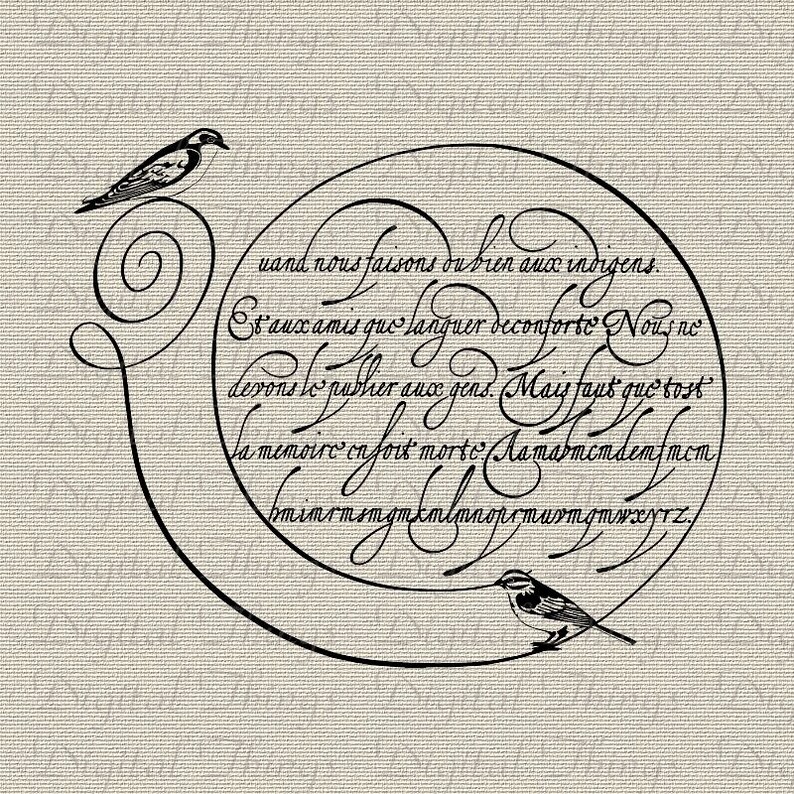 Quand nous faisons du bien aux indigens.
Et aux amis que languer deconforte Nous ne
devons le publier aux gens. Mais faut que tost
la memoire en soit morte.
Digital Things